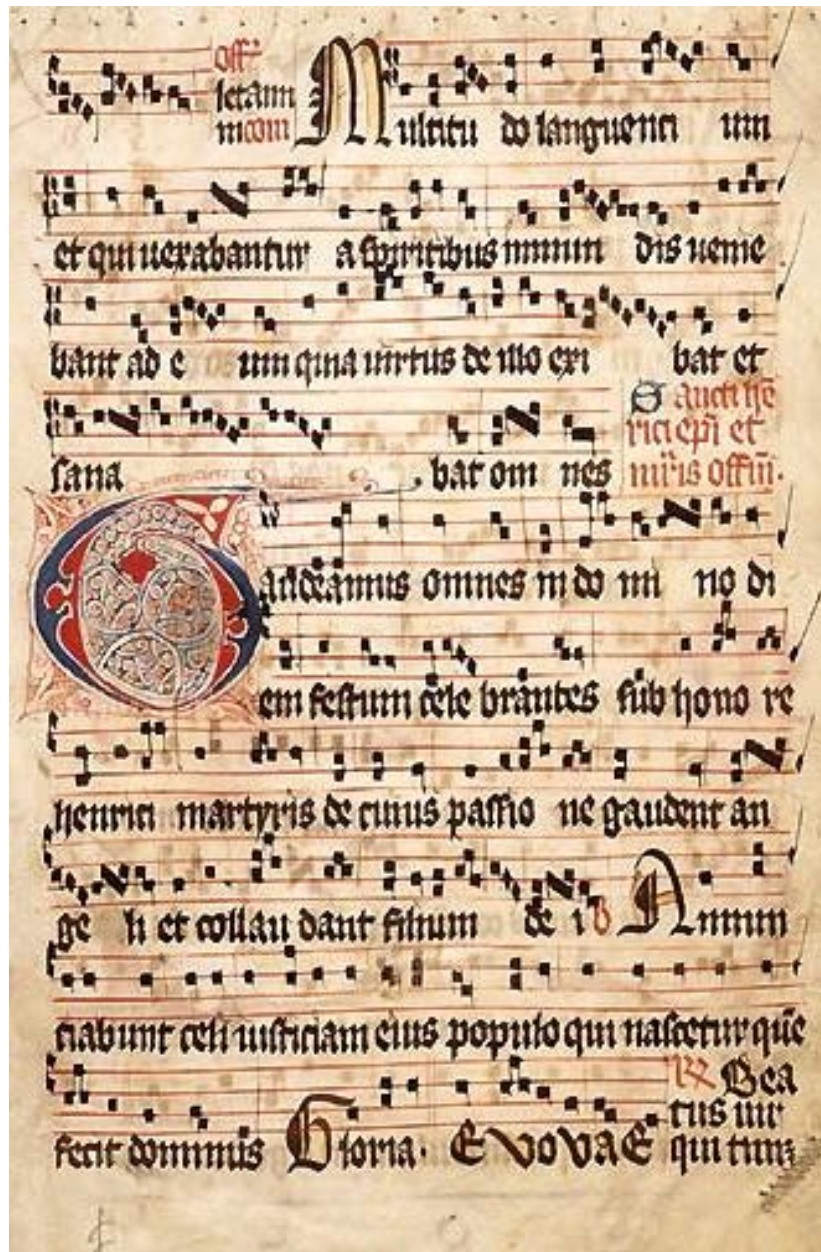 off̄
letam
in com Multitu do languenti um
et qui uexabantur a spiritibus inmun dis uenie
bant ad e um quia uirtus de illo exi bat et
sana bat om nes
Sancti hē
rici ep̄i et
mr̄is offm̄.
Gaudeamus omnes in do mi no di
em festum cele brantes sub hono re
henrici martyris de cuius passio ne gaudent an
ge li et collau dant filium de i V Annun
ciabunt celi iusticiam eius populo qui nascetur quē
fecit dominus Gloria. EVOVAE
Bea
tus uir
qui tim